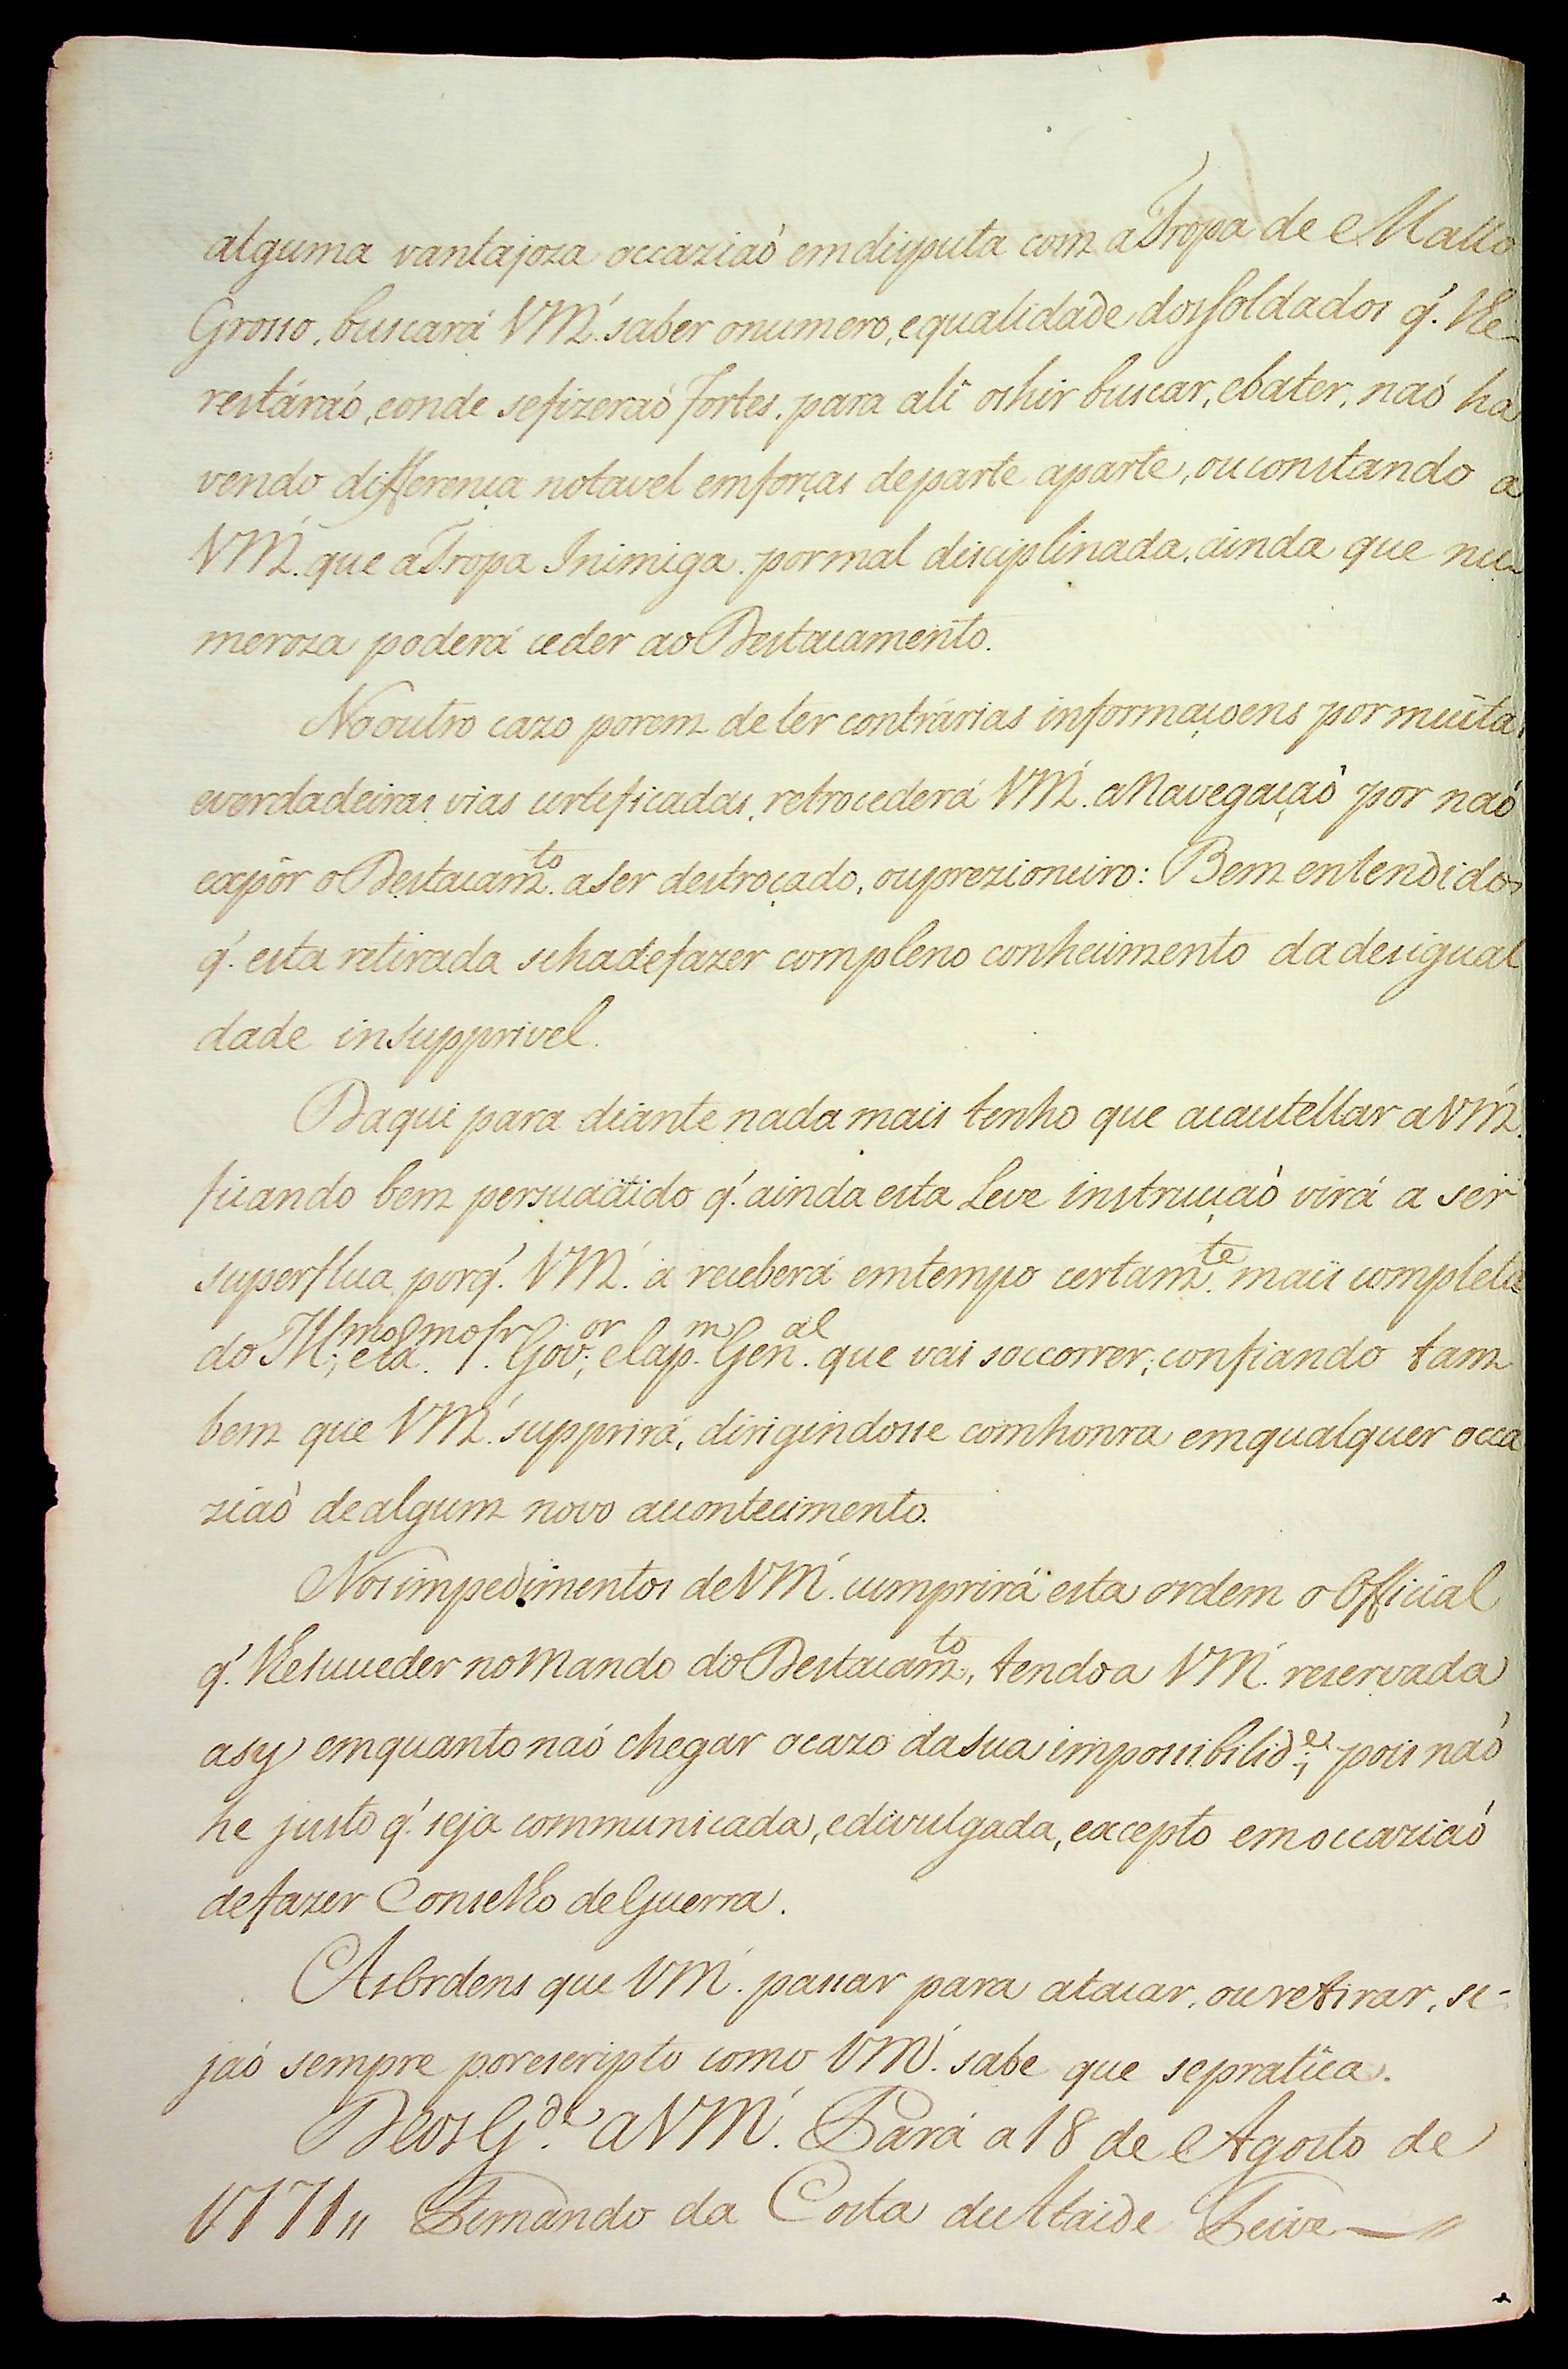 alguma vantajoza occaziaõ em disputa com a Tropa de Matto
Grosso, buscará VM.ce saber o numero, e qualidade dos soldados q'. lhe
restáraõ, e onde se fizeraõ fortes, para ali os hir buscar, e bater, naõ ha
vendo differença notavel em forças de parte a parte, ou constando a
VM.ce que a Tropa Inimiga por mal disciplinada, ainda que nu-
meroza poderá ceder ao Destacamento.
No outro cazo porem de ter contrárias informaçoens por muitas
e verdadeiras vias certificadas, retrocederá VM.ce a Navegaçaõ por naõ
expôr o Destacam.to a ser destroçado, ou prezioneiro: Bem entendido
q'. esta retirada se ha de fazer com pleno conhecimento da desigual
dade insupprivel.
Daqui para diante nada mais tenho que acautellar a VM.ce
ficando bem persuadido q'. ainda esta Leve instrucçaõ virá a ser
superflua, porq'. VM.ce a receberá em tempo certam.te mais completa
do Ill.mo, e Ex.mo Sr. Gov.or, e Cap.m Gen.al que vai soccorrer; confiando tam
bem que VM.ce supprirá, dirigindosse com honra em qualquer occa
ziaõ de algum novo acontecimento.
Nos impedimentos de VM.ce cumprirá esta ordem o Official
q'. lhe succeder no Mando do Destacam.to, tendo a VM.ce reservada
a sy em quanto naõ chegar o cazo da sua impossibilid.e; pois naõ
he justo q'. seja communicada, e divulgada, excepto em occaziaõ
de fazer Conselho de Guerra.
As Ordens que VM.ce passar para atacar, ou retirar, se-
jaõ sempre por escripto como VM.ce sabe que se pratica.
Deos G.de a VM.ce Pará a 18 de Agosto de
1771,, Fernando da Costa de Ataide Teive